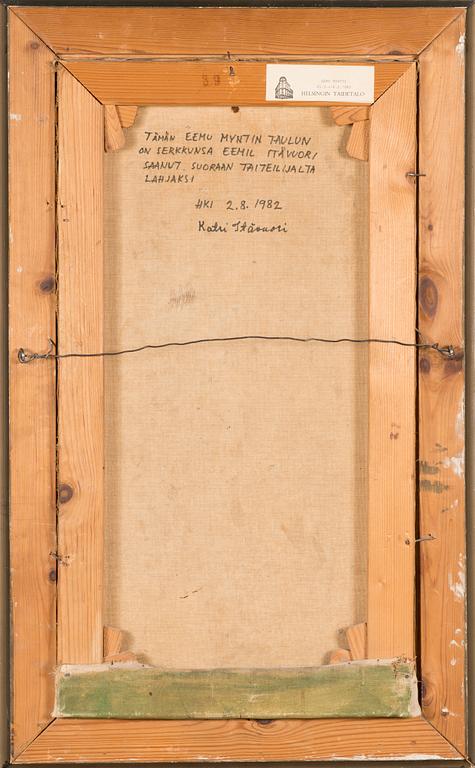 39
EEMU MYNTTI
HELSINGIN TAIDETALO
TÄMÄN EEMU MYNTIN TAULUN
ON SERKKUNSA EEMIL ITÄVUORI
SAANUT SUORAAN TAITEILIJALTA
LAHJAKSI
HKI 2.8.1982
Katri Itävuori